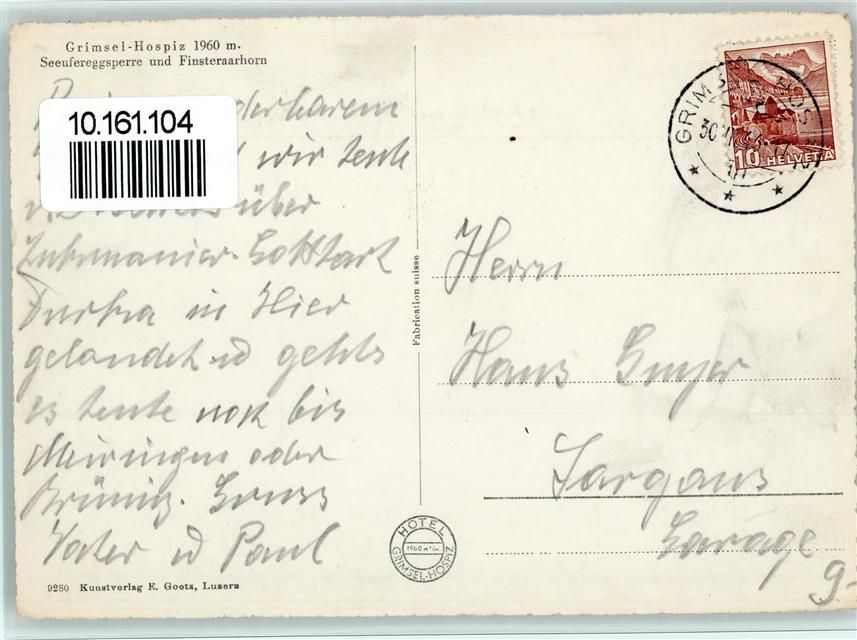 Grimsel-Hospiz 1960 m.
Seeufereggsperre und Finsteraarhorn
10.161.104
Bei
wir heute
über
Lukmanier-Gotthart
Furka in Hier
gelandet u gehts
es heute noch bis
Meiringen oder
Brünig. Gruss
Vater u Paul
9280 Kunstverlag E. Goetz, Luzern
Fabrication suisse
HOTEL
1960 m
GRIMSEL-HOSPIZ
GRIMSEL HOSPIZ
30
10 HELVETIA
Herrn
Hans
Sargans
Garage